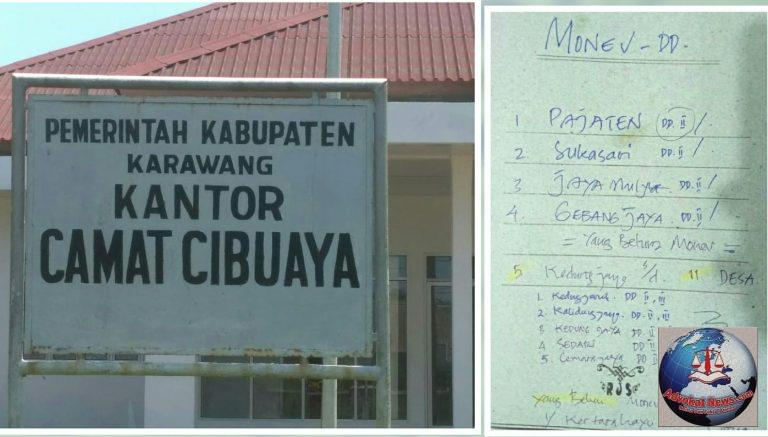 PEMERINTAH KABUPATEN
KARAWANG
KANTOR
CAMAT CIBUAYA
MONEV - DD.
1 PAJATEN DD. II /
2. Sukasari DD. II /
3 JAYA Mulya DD. II /
4. GEBANG JAYA DD. II /
= Yang Belum Monev =
5 Kedung jaya s/d 11 DESA
1. DD II, III
2. Kalidung jaya. DD. II, III
3 KEDUNG JAYA DD II
4 SEDARI DD II
5. Cemara jaya DD
RJS
Yang Belum Monev
Kertarahayu
Advokat News.com